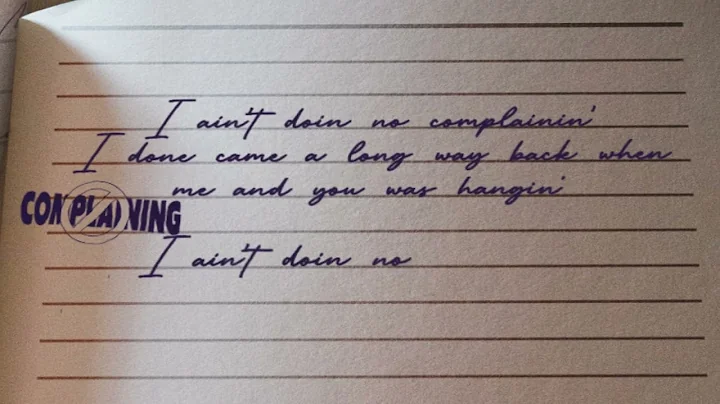 I ain't doin no complainin'
I done came a long way back when
me and you was hangin'
COMPLAINING
I ain't doin no